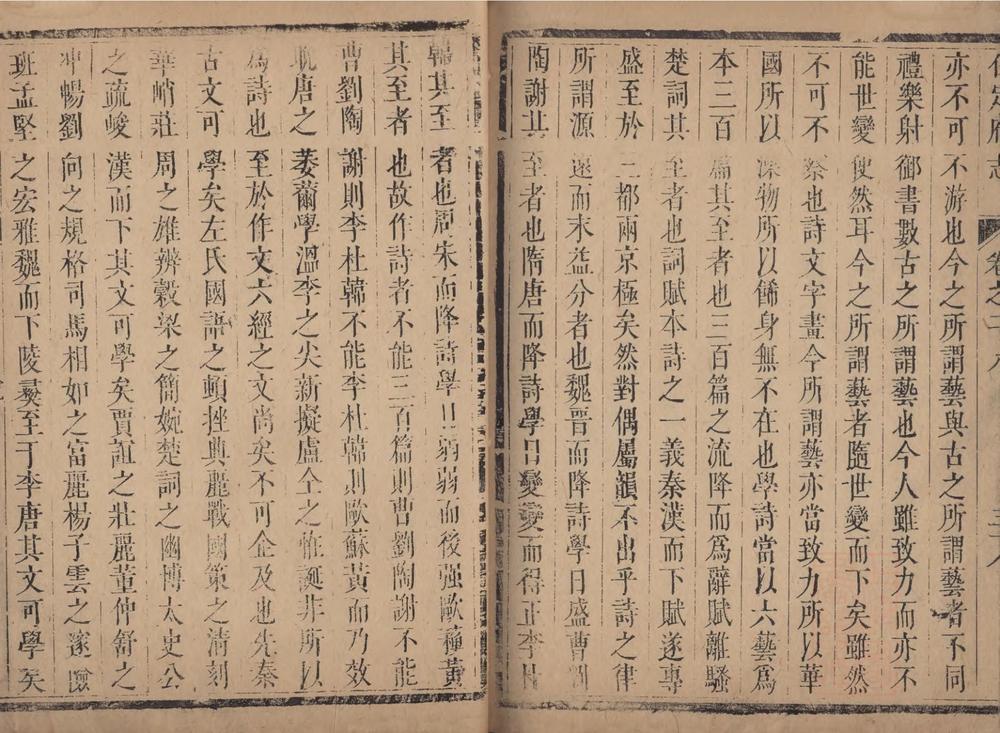 保定府志 卷之
亦不可不游也今之所謂藝與古之所謂藝者不同
禮樂射御書數古之所謂藝也今人雖致力而亦不
能世變使然耳今之所謂藝者隨世變而下矣雖然
不可不察也詩文字畫今所謂藝亦當致力所以華
國所以深物所以餙身無不在也學詩當以六藝爲
本三百篇其至者也三百篇之流降而爲辭賦離騷
楚詞其至者也詞賦本詩之一義秦漢而下賦遂專
盛至於三都兩京極矣然對偶屬韻不出乎詩之律
所謂源遠而末益分者也魏晋而降詩學日盛曹劉
陶謝其至者也隋唐而降詩學日變變而得正李杜
韓其至者也周宋而降詩學日弱弱而後强歐蘓黃
其至者也故作詩者不能三百篇則曹劉陶謝不能
曹劉陶謝則李杜韓不能李杜韓則歐蘇黃而乃效
晩唐之萎薾學溫李之尖新擬盧仝之怪誕非所以
爲詩也至於作文六經之文尚矣不可企及也先秦
古文可學矣左氏國語之頓挫典麗戰國策之清刻
華峭莊周之雄辨穀梁之簡婉楚詞之幽博太史公
之疏峻漢而下其文可學矣賈誼之壯麗董仲舒之
冲暢劉向之規格司馬相如之富麗楊子雲之邃險
班孟堅之宏雅魏而下陵夷至于李唐其文可學矣